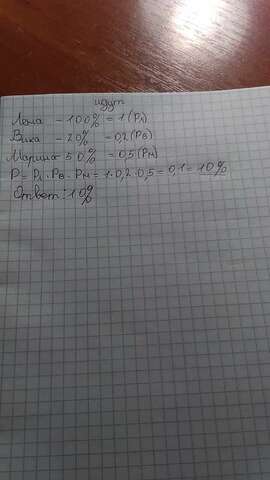 идут
Лена - 100% = 1 (Pл)
Вика - 20% - 0,2 (Pв)
Марина - 50% = 0,5 (Pм)
P = Pл · Pв · Pм = 1 · 0,2 · 0,5 = 0,1 = 10%
Ответ: 10%